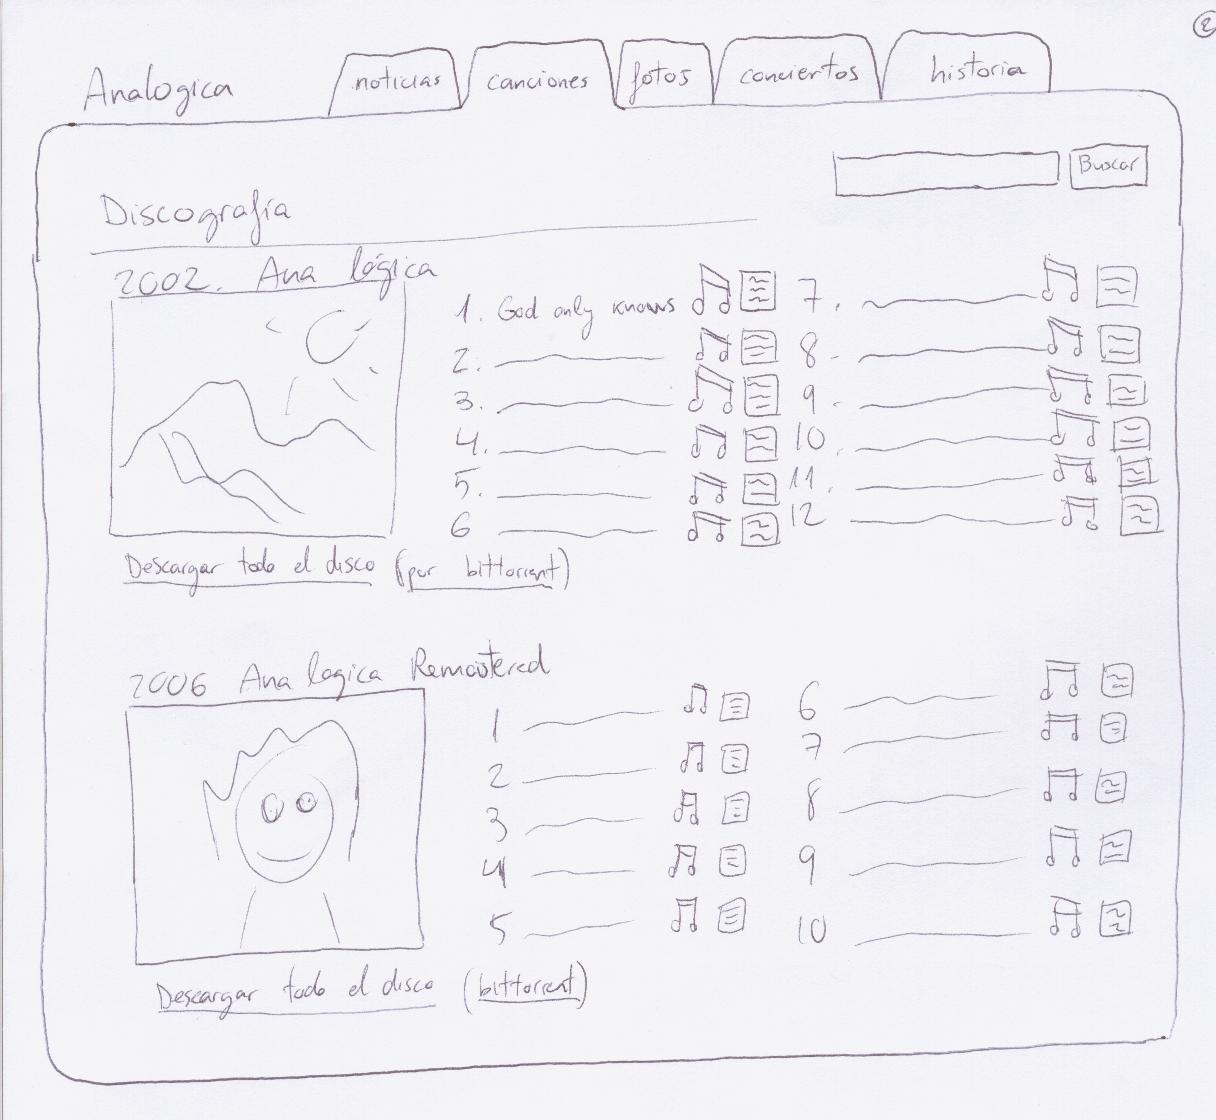 2
Analogica noticias canciones fotos conciertos historia
Buscar
Discografía
2002. Ana lógica
1. God only knows
2.
3.
4.
5.
6
7.
8.
9.
10.
11.
12
Descargar todo el disco (por bittorrent)
2006 Ana logica Remastered
1
2
3
4
5
6
7
8
9
10
Descargar todo el disco (bittorrent)